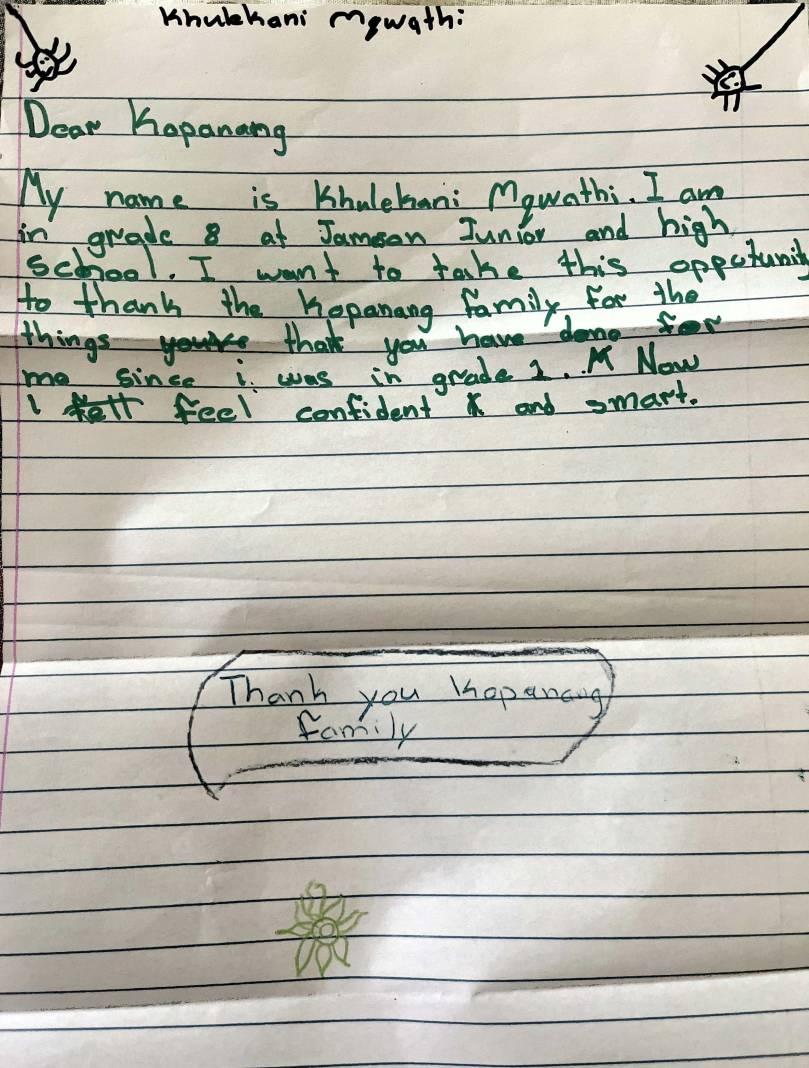 Khulekani Mgwathi
Dear Kopanang
My name is Khulekani Mgwathi. I am
in grade 8 at Jameson Junior and high
school. I want to take this oppctunit
to thank the Kopanang family for the
things that you have done for
me since i was in grade 1. Now
I feel confident and smart.
Thank you Kopanang
family